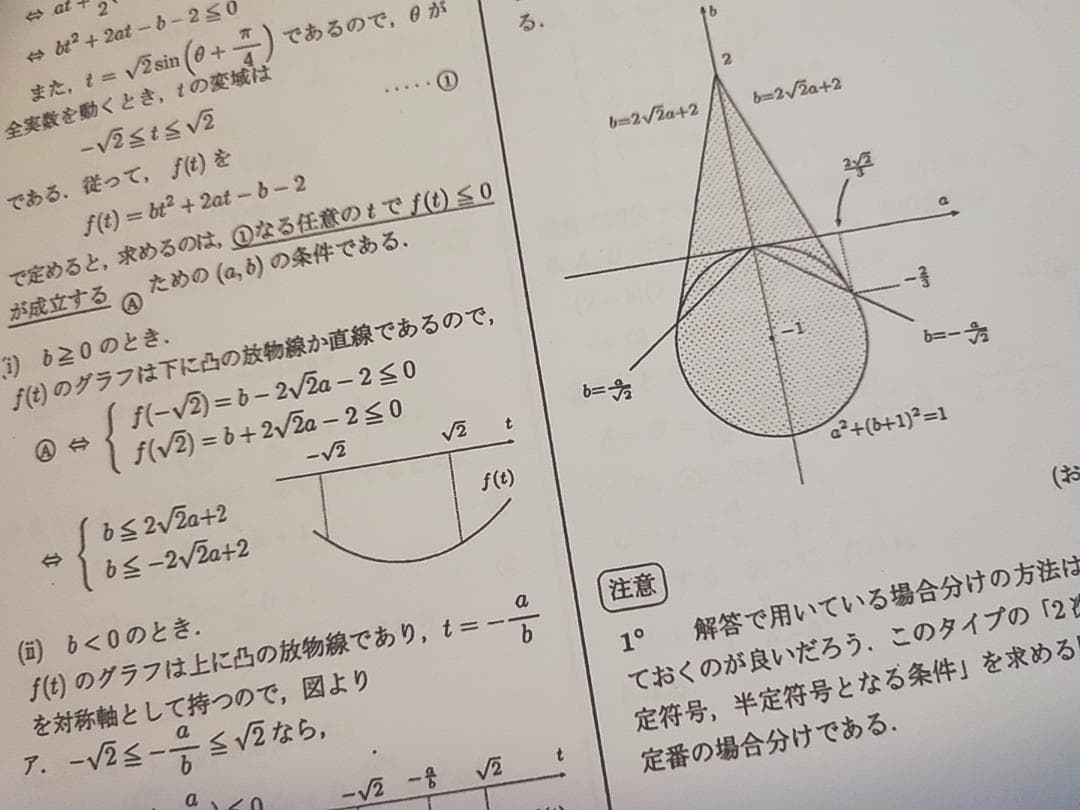 ⇔ at +
⇔ bt² + 2at − b − 2 ≦ 0
また，t = √2 sin(θ + π/4) であるので，θ が
全実数を動くとき，t の変域は
−√2 ≦ t ≦ √2 ‥‥‥①
である．従って，f(t) を
f(t) = bt² + 2at − b − 2
で定めると，求めるのは，①なる任意の t で f(t) ≦ 0
が成立する Ⓐ ための (a, b) の条件である．
(i) b ≧ 0 のとき．
f(t) のグラフは下に凸の放物線か直線であるので，
Ⓐ ⇔ { f(−√2) = b − 2√2a − 2 ≦ 0
f(√2) = b + 2√2a − 2 ≦ 0
−√2 √2 t
f(t)
⇔ { b ≦ 2√2a + 2
b ≦ −2√2a + 2
(ii) b < 0 のとき．
f(t) のグラフは上に凸の放物線であり，t = −a/b
を対称軸として持つので，図より
ア．−√2 ≦ −a/b ≦ √2 なら，
−√2 −a/b √2 t
る．
b
2
b=2√2a+2
b=2√2a+2
2√2/3
a
−2/3
−1
b=−a/√2
b=a/√2
a²+(b+1)²=1
(お
注意
1° 解答で用いている場合分けの方法は
ておくのが良いだろう．このタイプの「2
定符号，半定符号となる条件」を求める
定番の場合分けである．